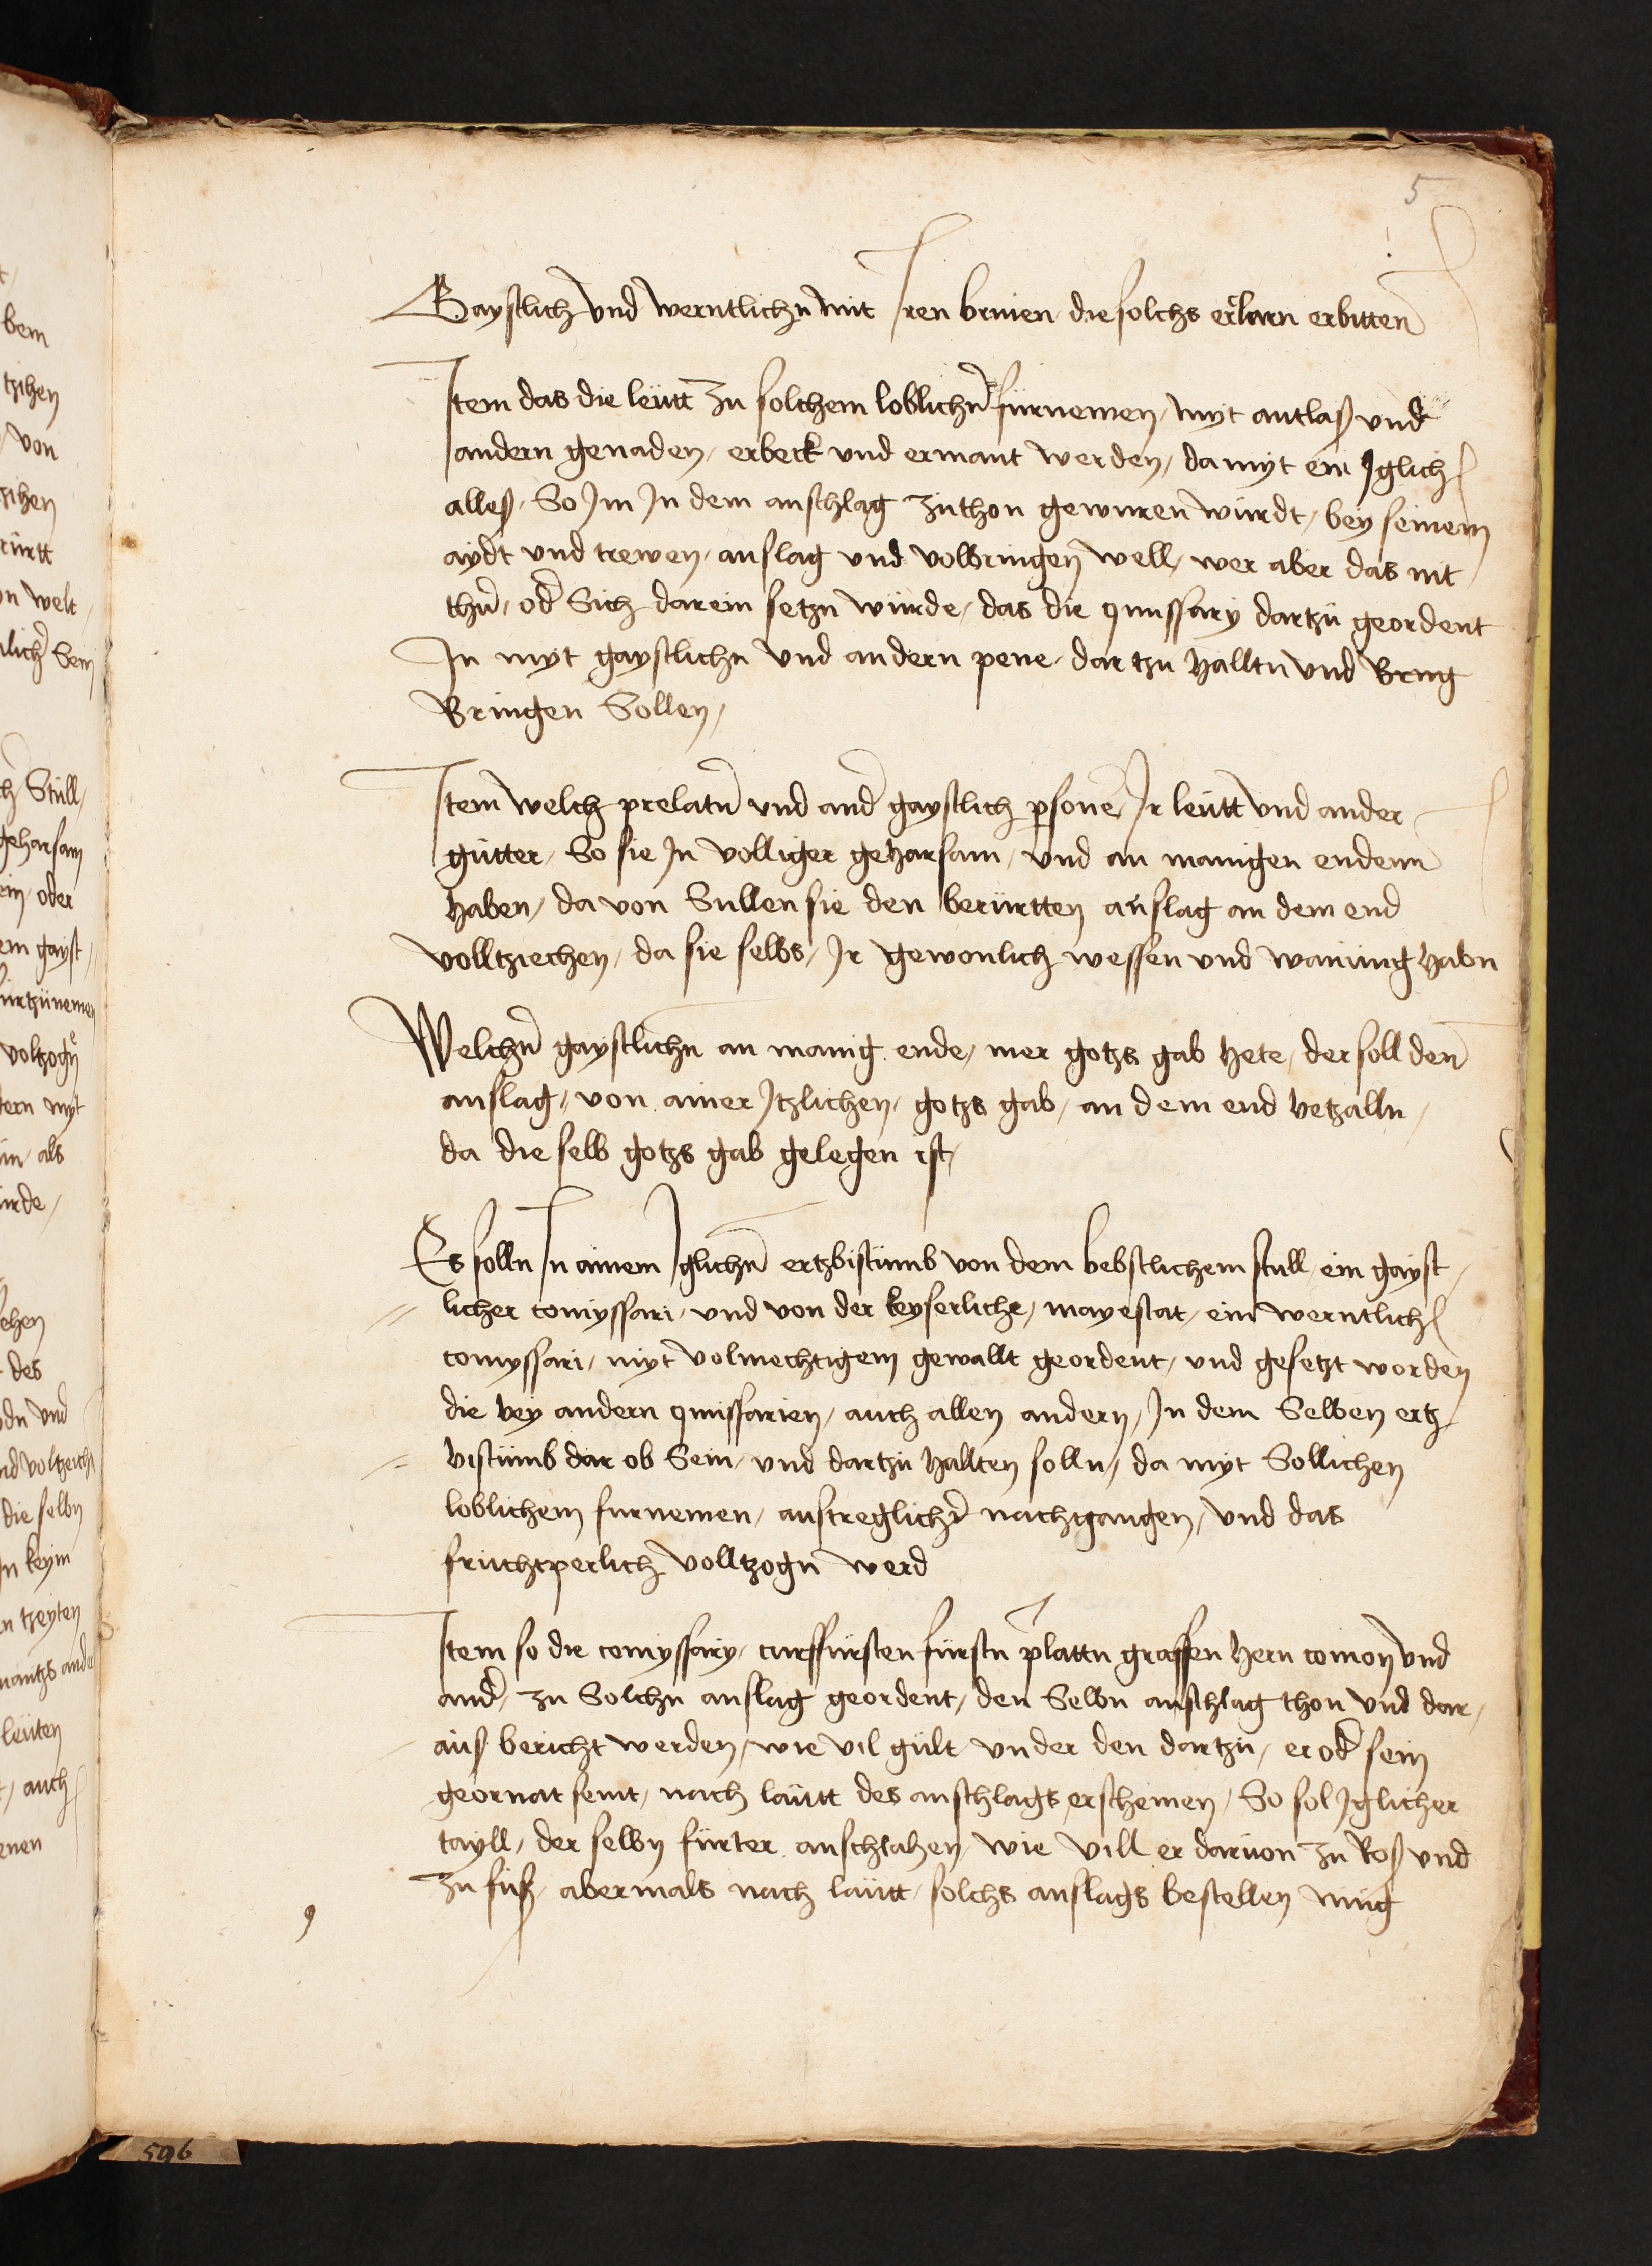 5
Gaystlich und werntlichn mit Iren brieven die solchs erclarn erbitten
Item das die leutt zu solchem loblichn fürnemen / myt antlaß und
andern genaden / erbeck und ermant werden / da myt ein Iglich
alles / So Im In dem anschlag zuthon gewuren würdt / bey seinem
aydt und trewen / anslag und volbringen well / wer aber das nit
thu / od Sich darein setzn würde / das die qmissary dartzu geordent
In myt gaystlichn und andern pene / dar tzu halltn und Brng
Bringen Sollen /
Item welch prelatn und and gaystlich psone Ir leutt und ander
gütter / So sie In volliger gehorsam / und an manigen endenn
haben / da von Sullen sie den berürtten anslag an dem end
volltziechen / da sie selbs / Ir gewonlich wessen und wanung habn
Welchn gaystlichn an manig ende / mer gotzs gab hete / der soll den
anslag / von ainer Itzlichen / gotzs gab / an dem end betzalln /
da die selb gotzs gab gelegen ist /
Es solln In ainem Iglichn ertzbistumb von dem bebstlichem stull / ein gayst
licher comyssari / und von der keyserliche / mayestat / ein werntlich
comyssari / myt volmechtigem gewallt geordent / und gesetzt worden
die bey andern qmissarien / auch allen andern / In dem Selben ertz
bistumb dar ob Sein / und dartzu hallten solln / da myt Sollichen
loblichem furnemen / austreglicher nachgangen / und das
fruchtperlich volltzogn werd
Item so die comyssary / curffürsten fürstn plattn graffen hern comon und
and / zu Solchn anslag geordent / den Selbn anschlag thon und dar /
auß bericht werden / wie vil gült under den dartzu / er od sein
geornat seint / nach lautt des anschlags erscheinen / So sol Iglicher
tayll / der selbn fürter anschlahen / wie vill er darvon zu Roß und
zu fuß / abermals nach lautt / solchs anslags bestellen mug
596